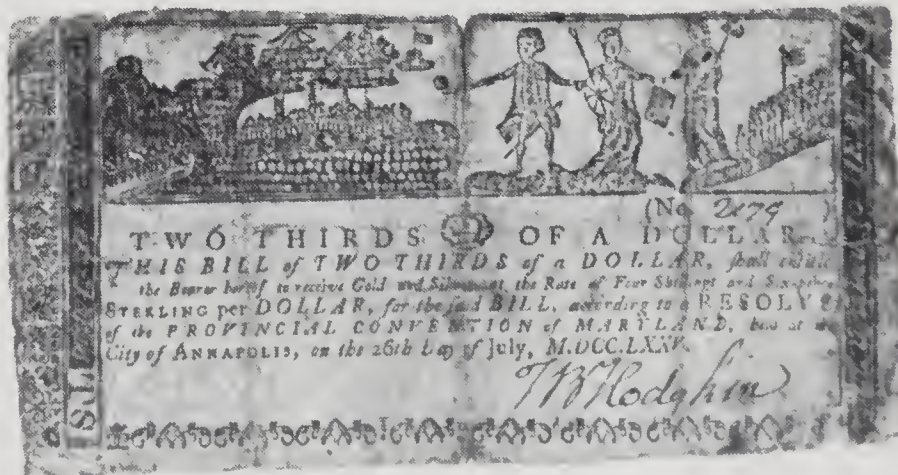 (No 2179 )
TWO THIRDS OF A DOLLAR.
THIS BILL of TWO THIRDS of a DOLLAR, shall entitle
the Bearer hereof to receive Gold and Silver, at the Rate of Four Shillings and Six-pence
STERLING per DOLLAR, for the said BILL, according to a RESOLVE
of the PROVINCIAL CONVENTION of MARYLAND, held at the
City of ANNAPOLIS, on the 26th Day of July, M.DCC.LXXV.
TBHodgkin